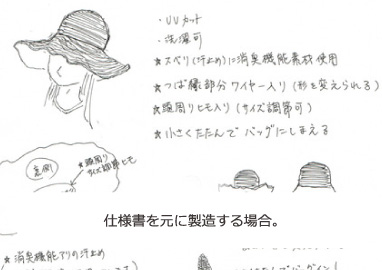 ・UVカット
・洗濯可
★スベリ(汗止め)に消臭機能素材使用
★つば縁部分ワイヤー入り(形を変えられる)
★頭周りヒモ入り(サイズ調節可)
★小さくたたんでバッグにしまえる
裏側
★頭周り
サイズ調節ヒモ
仕様書を元に製造する場合。
★消臭機能アリの汗止め